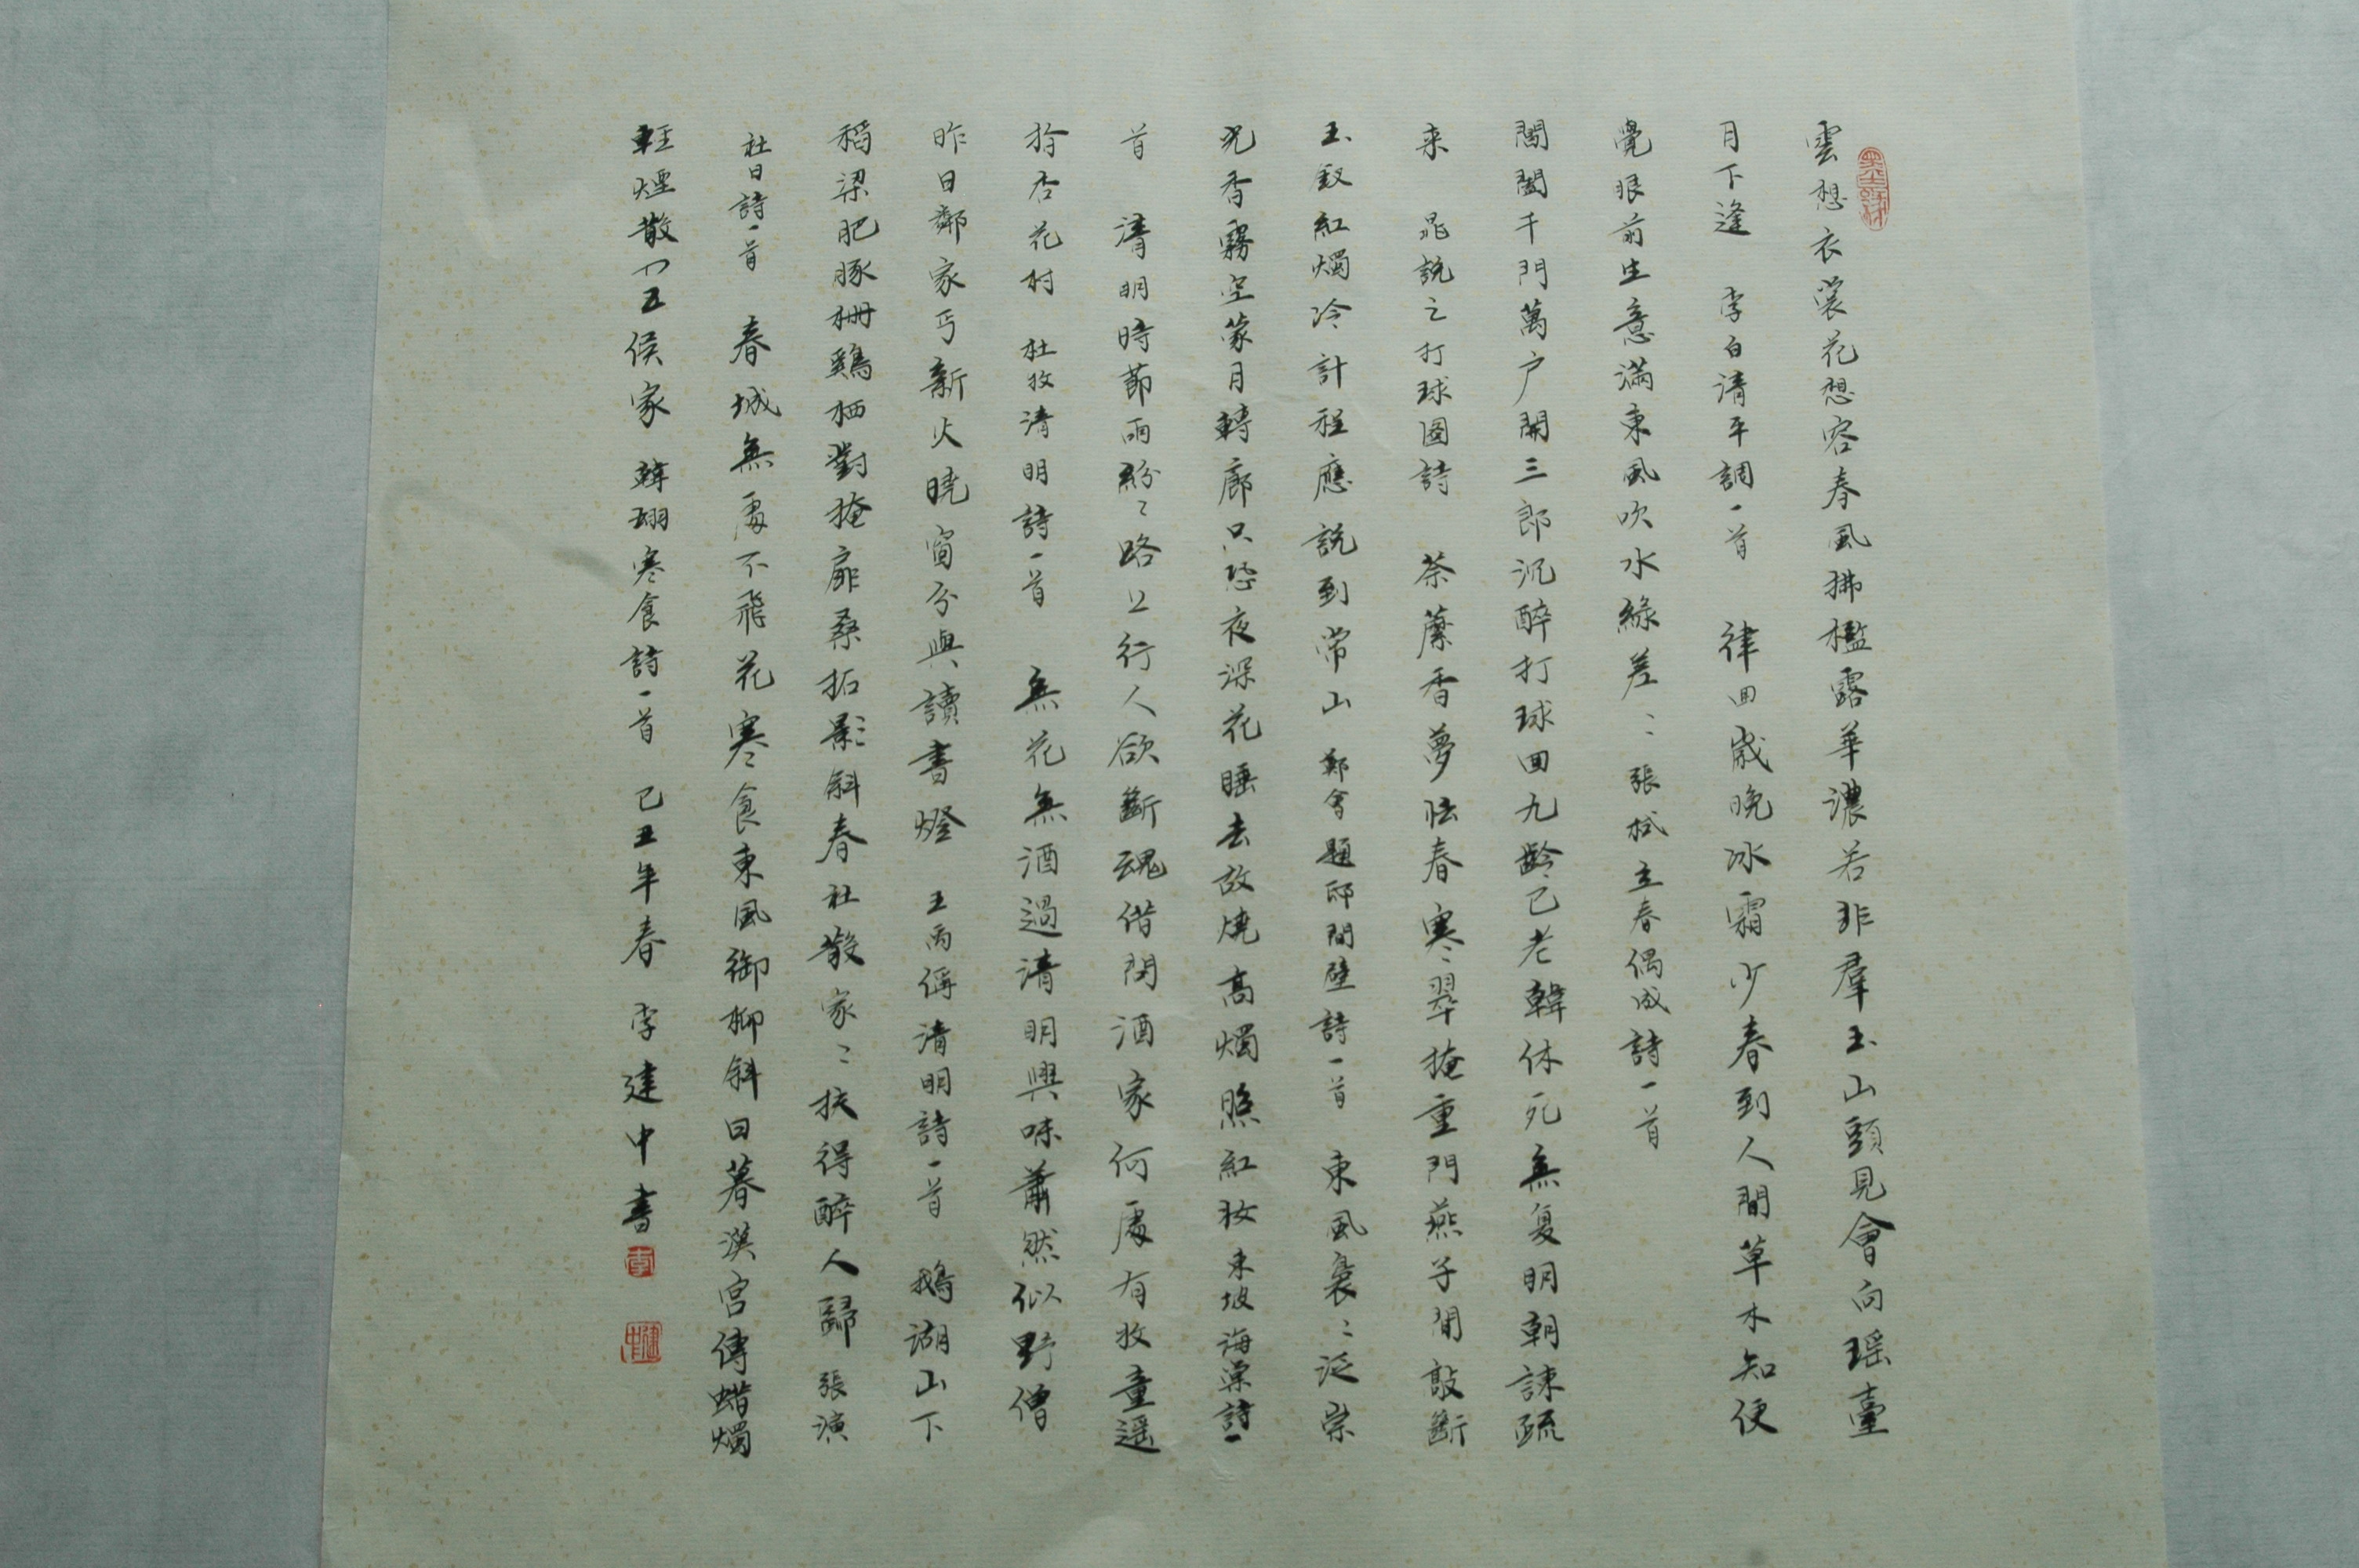 雲想衣裳花想容春風拂檻露華濃若非羣玉山頭見會向瑶臺
月下逢 李白清平調一首 律回歲晚冰霜少春到人間草木知便
覺眼前生意滿東風吹水綠差〻 張栻立春偶成詩一首
閶闔千門萬户開三郎沉醉打球回九齡已老韓休死無复明朝諫疏
来 晁説之打球圖詩 荼蘼香夢怯春寒翠掩重門燕子閒敲斷
玉釵紅燭冷計程應説到常山 鄭會題邸間壁詩一首 東風裊〻泛崇
光香霧空蒙月轉廊只恐夜深花睡去故燒高燭照紅妝 東坡海棠詩一
首 清明時節雨紛〻路上行人欲斷魂借問酒家何處有牧童遥
指杏花村 杜牧清明詩一首 無花無酒過清明興味蕭然似野僧
昨日鄰家丐新火曉窗分與讀書燈 王禹偁清明詩一首 鵝湖山下
稻梁肥豚栅鷄栖對掩扉桑拓影斜春社散家〻扶得醉人歸 張演
社日詩一首 春城無處不飛花寒食東風御柳斜日暮漢宮傳蜡燭
輕煙散入五侯家 韓翃寒食詩一首 己丑年春 李建中書
李
建中